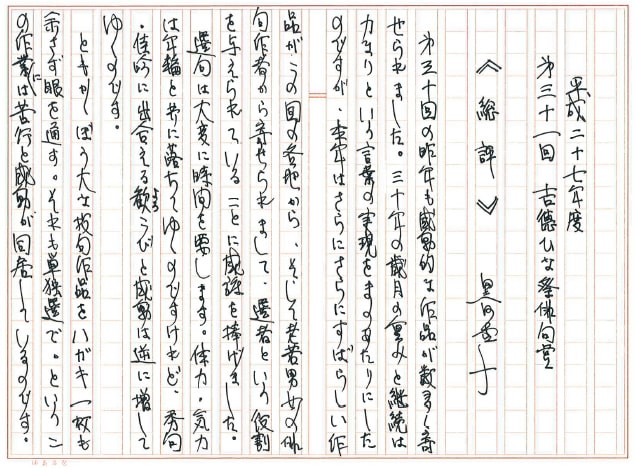 平成二十七年度
第三十一回 吉徳ひな祭俳句賞
《総評》 黒田杏子
第三十回の昨年も感動的な作品が数多く寄
せられました。三十年の歳月の重みと継続は
力なりという言葉の実現をまのあたりにした
のですが、本年はさらにさらにすばらしい作
品がこの国の各地から、そして老若男女の俳
句作者から寄せられまして、選者という役割
を与えられていることに感謝を捧げました。
選句は大変に時間を要します。体力・気力
は年輪と共に落ちてゆくのですけれど、秀句
・佳吟に出合える歓よろこびと感動は逆に増して
ゆくのです。
ともかくぼう大な投句作品をハガキ一枚も
余さず眼を通す。それも単独選で。というこ
の作業には苦行と感動が同居しているのです。